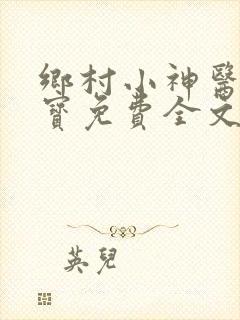 鄉村小神醫
寶免費全文
英兒